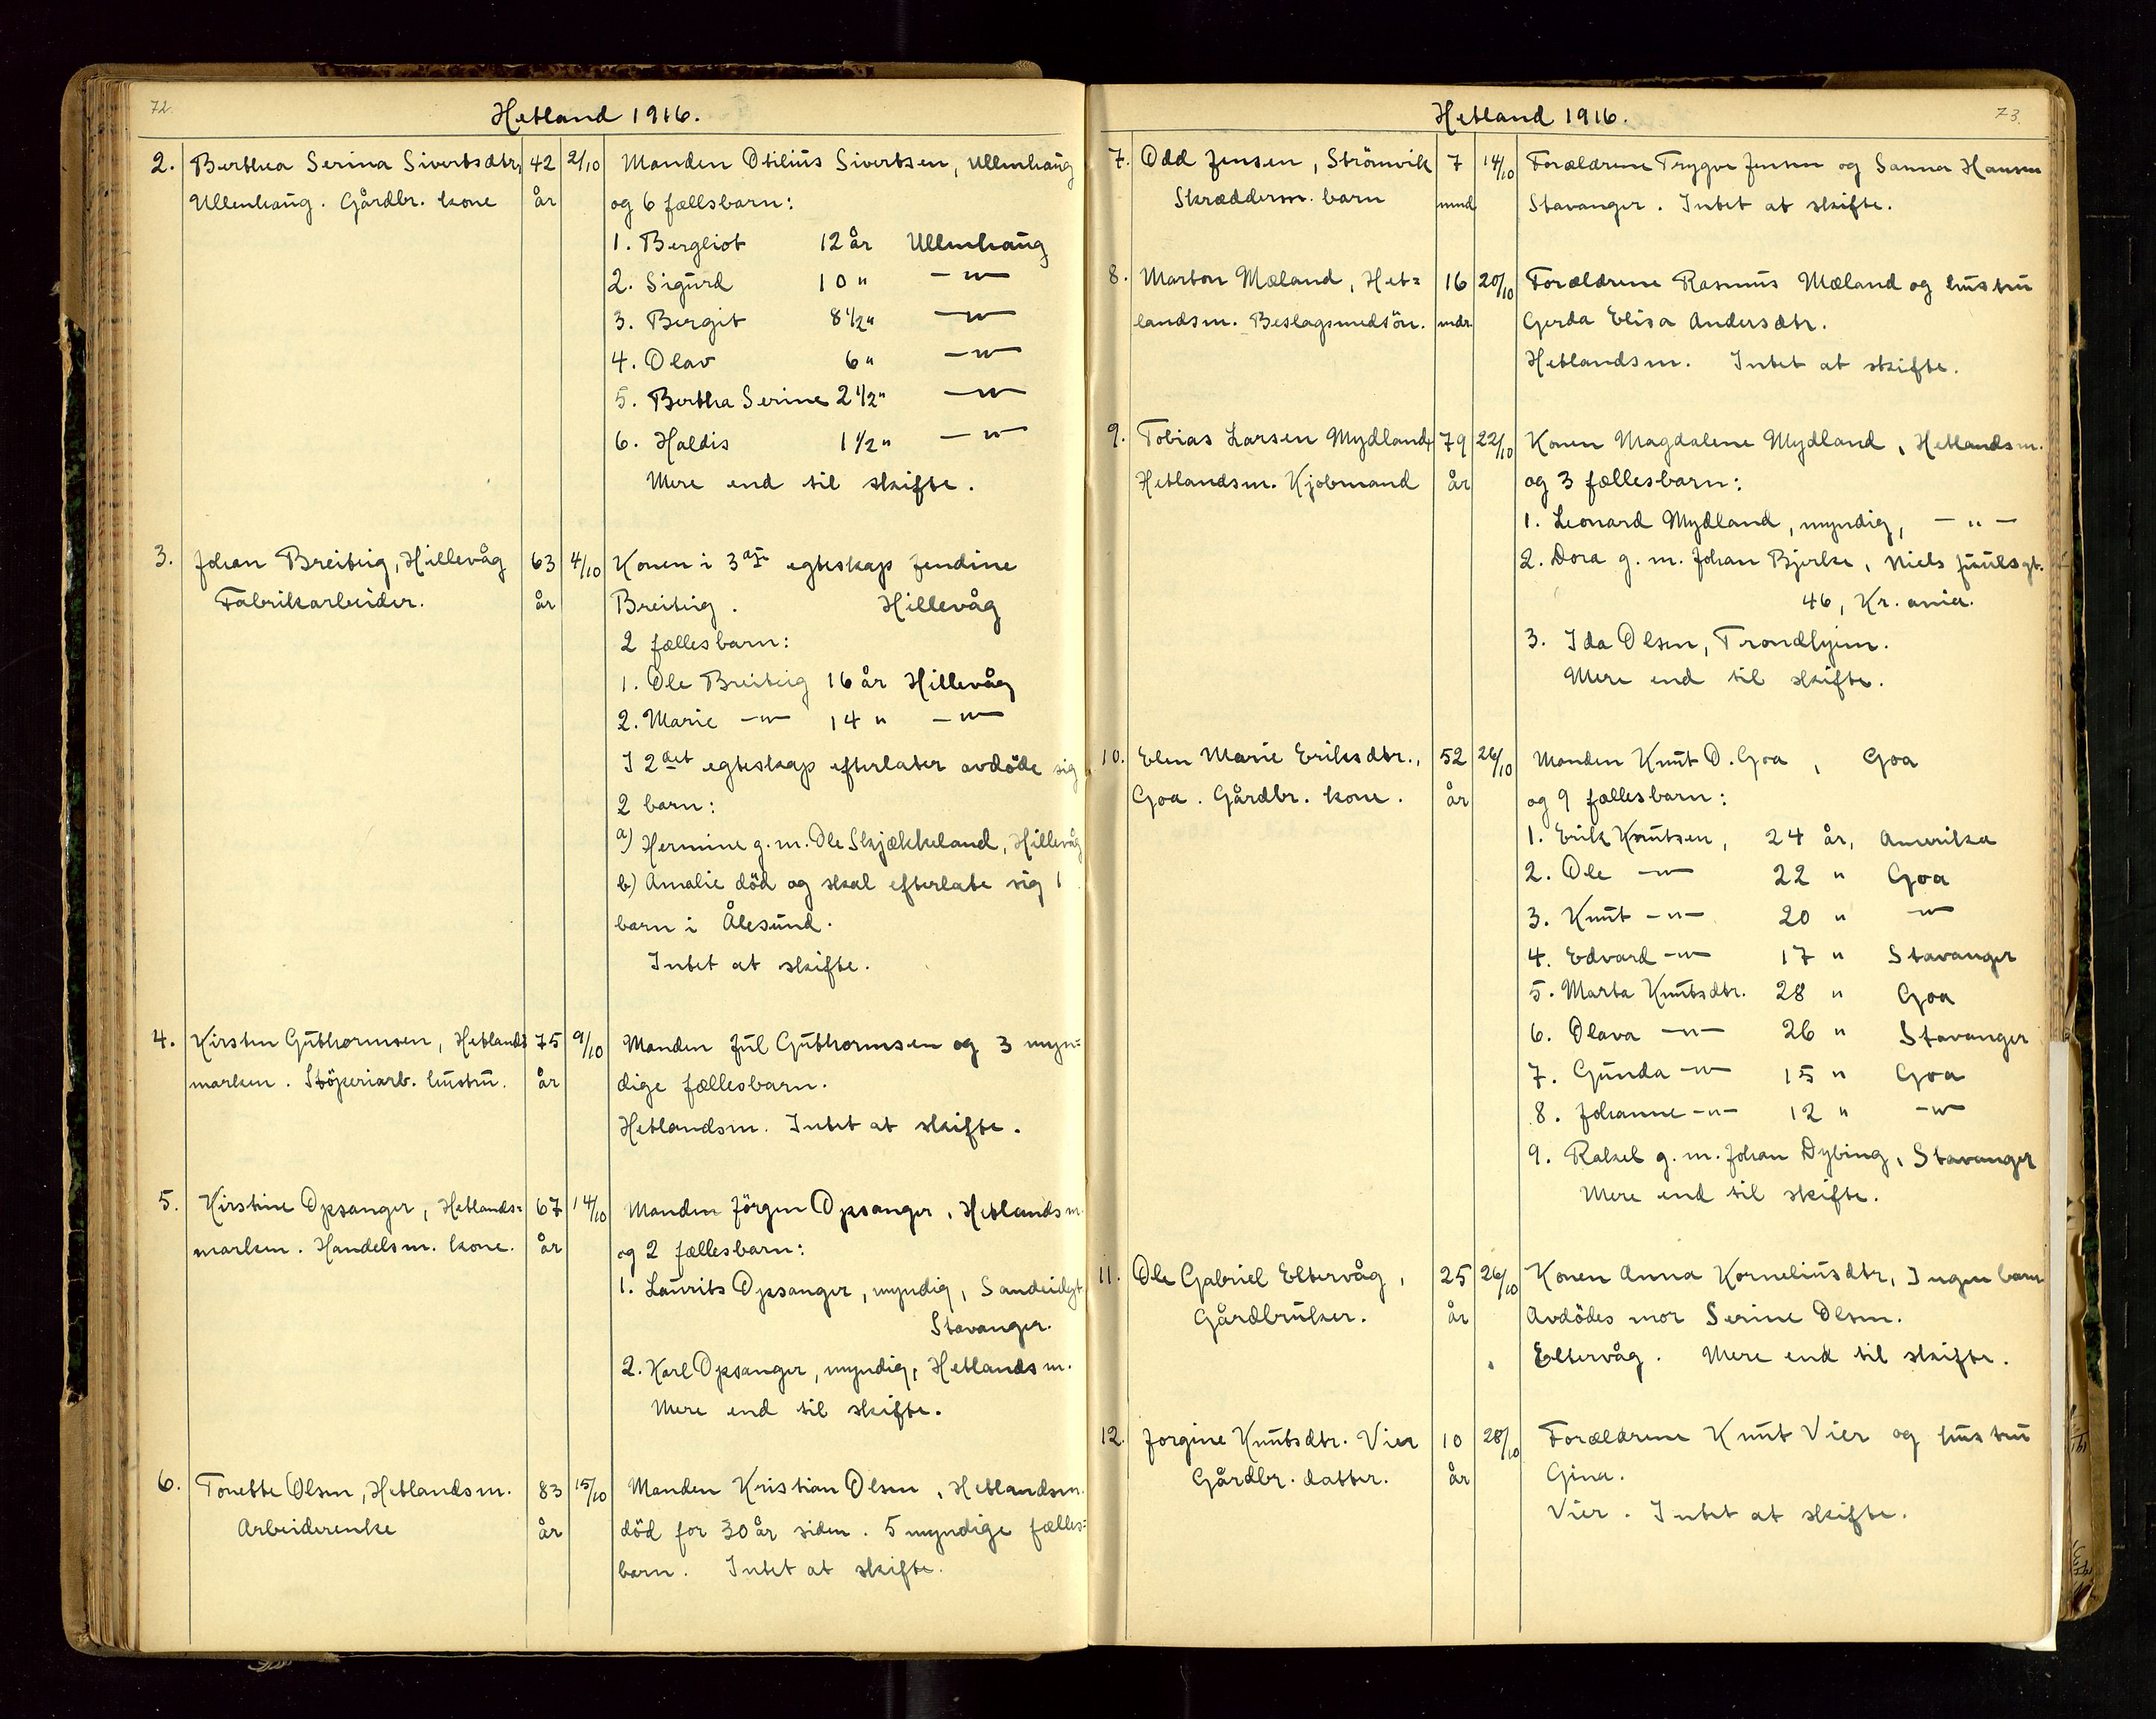 72.
Hetland 1916.
2. Berthea Serina Sivertsdtr, 42 2/10 Manden Otilius Sivertsen, Ullenhaug
Ullenhaug. Gårdbr. kone år og 6 fællsbarn:
1. Bergliot 12 år Ullenhaug
2. Sigurd 10 " -"-
3. Bergit 8 1/2 " -"-
4. Olav 6 " -"-
5. Bertha Serine 2 1/2 " -"-
6. Haldis 1 1/2 " -"-
Mere end til skifte.
3. Johan Breiteig, Hillevåg 63 4/10 Konen i 3 egteskap Jendine
Fabrikarbeider. år Breiteig. Hillevåg
2 fællesbarn:
1. Ole Breiteig 16 år Hillevåg
2. Marie -"- 14 " -"-
I 2det egteskap efterlater avdöde sig
2 barn:
a) Hermine g. m. Ole Skjækkeland, Hillevåg
b) Amalie död og skal efterlate sig 1
barn i Ålesund.
Intet at skifte.
4. Kirsten Guthormsen, Hetlands 75 9/10 Manden Jul Guthormsen og 3 myn=
marken. Stöperiarb. hustru. år dige fællesbarn.
Hetlandsm. Intet at skifte.
5. Kirstine Opsanger, Hetlands= 67 14/10 Manden Jörgen Opsanger, Hetlandsm.
marken. Handelsm. kone. år og 2 fællesbarn:
1. Laurits Opsanger, myndig, Sandeidgt
Stavanger.
2. Karl Opsanger, myndig, Hetlandsm.
Mere end til skifte.
6. Tonette Olsen, Hetlandsm. 83 15/10 Manden Kristian Olsen, Hetlandsm.
Arbeiderenke år död for 30 år siden. 5 myndige fælles=
barn. Intet at skifte.
Hetland 1916.
73.
7. Odd Jensen, Strömvik 7 14/10 Forældrene Trygve Jensen og Sanna Hansen
Skrædderm. barn mnd Stavanger. Intet at skifte.
8. Marton Mæland, Het= 16 20/10 Forældrene Rasmus Mæland og hustru
landsm. Beslagsmedsön. mdr. Gerda Elisa Andersdtr.
Hetlandsm. Intet at skifte.
9. Tobias Larsen Mydland, 79 22/10 Konen Magdalene Mydland, Hetlandsm.
Hetlandsm. Kjöbmand år og 3 fællesbarn:
1. Leonard Mydland, myndig, -"-
2. Dora g. m. Johan Bjerke, Niels Juulsgt.
46, Kr.ania.
3. Ida Olsen, Trondhjem.
Mere end til skifte.
10. Elen Marie Eriksdtr., 52 26/10 Manden Knut O. Goa, Goa
Goa. Gårdbr. kone. år og 9 fællesbarn:
1. Erik Knutsen, 24 år, Amerika
2. Ole -"- 22 " Goa
3. Knut -"- 20 " -"-
4. Edvard -"- 17 " Stavanger
5. Marta Knutsdtr. 28 " Goa
6. Olava -"- 26 " Stavanger
7. Gunda -"- 15 " Goa
8. Johanne -"- 12 " -"-
9. Rakel g. m. Johan Dybing, Stavanger
Mere end til skifte.
11. Ole Gabriel Eltervåg, 25 26/10 Konen Anna Korneliusdtr, Ingen barn
Gårdbruker. år Avdödes mor Serine Olsen.
Eltervåg. Mere end til skifte.
12. Jorgine Knutsdtr. Vier 10 28/10 Forældrene Knut Vier og hustru
Gårdbr. datter. år Gina.
Vier. Intet at skifte.